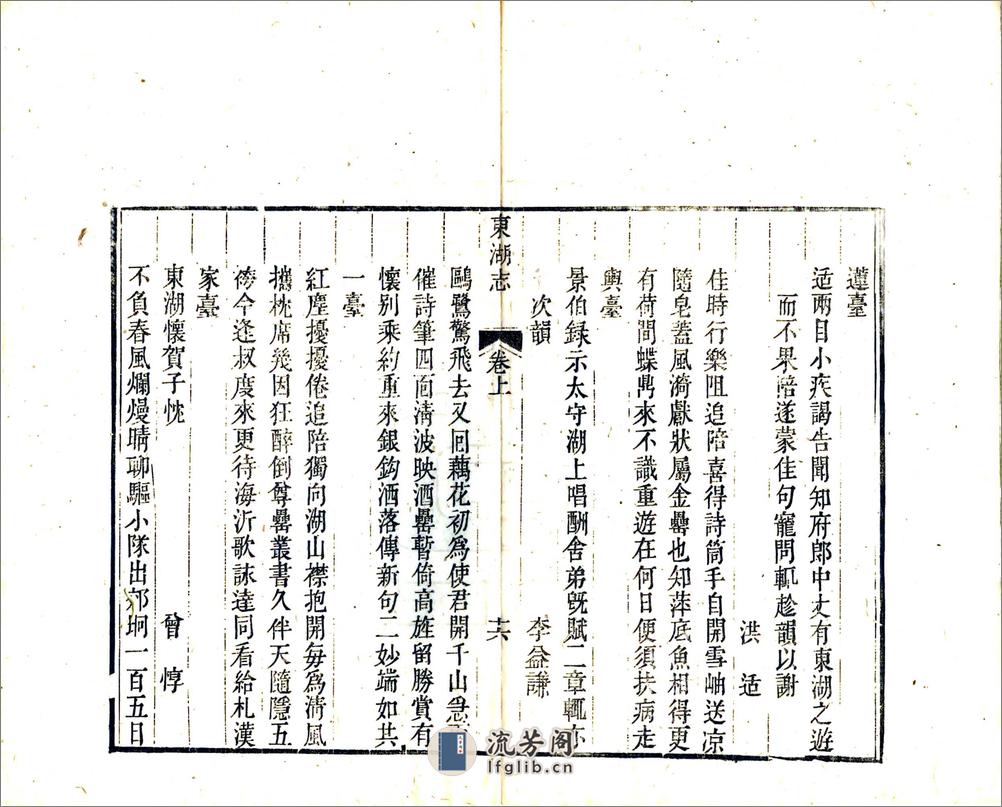 薖臺
适兩目小疾謁告聞知府郎中丈有東湖之遊
而不果陪遂蒙佳句寵問輒趁韻以謝
洪适
佳時行樂阻追陪喜得詩筒手自開雪岫送凉
隨皂蓋風漪獻狀屬金罍也知萍底魚相得更
有荷間蝶鼎來不識重遊在何日便須扶病走
輿臺
景伯録示太守湖上唱酬舍弟旣賦二章輒亦
次韻
李益謙
東湖志
卷上
十六
鷗鷺驚飛去又囘藕花初爲使君開千山急
催詩筆四面淸波映酒罍暫倚高旌留勝賞有
懷别乘約重來銀鈎洒落傳新句二妙端如共
一臺
紅塵擾擾倦追陪獨向湖山襟抱開每爲淸風
攜枕席幾因狂醉倒尊罍叢書久伴天隨隱五
袴今逢叔度來更待海沂歌詠達同看給札漢
家臺
東湖懷賀子忱
曾惇
不負春風爛熳晴聊驅小隊出郊坰一百五日
流芳阁
lfglib.cn